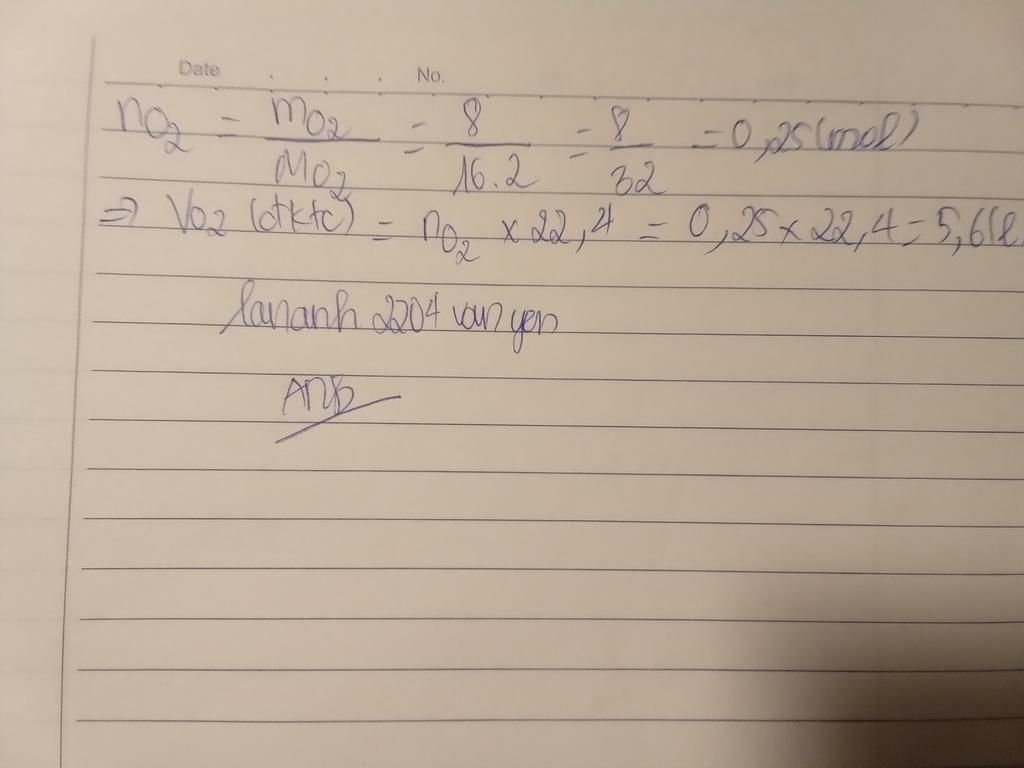 Date . . . No.
nO2 = mO2/MO2 = 8/16.2 = 8/32 = 0,25(mol)
=> VO2 (đktc) = nO2 x 22,4 = 0,25 x 22,4 = 5,6(l
lananh 2204 vanyen